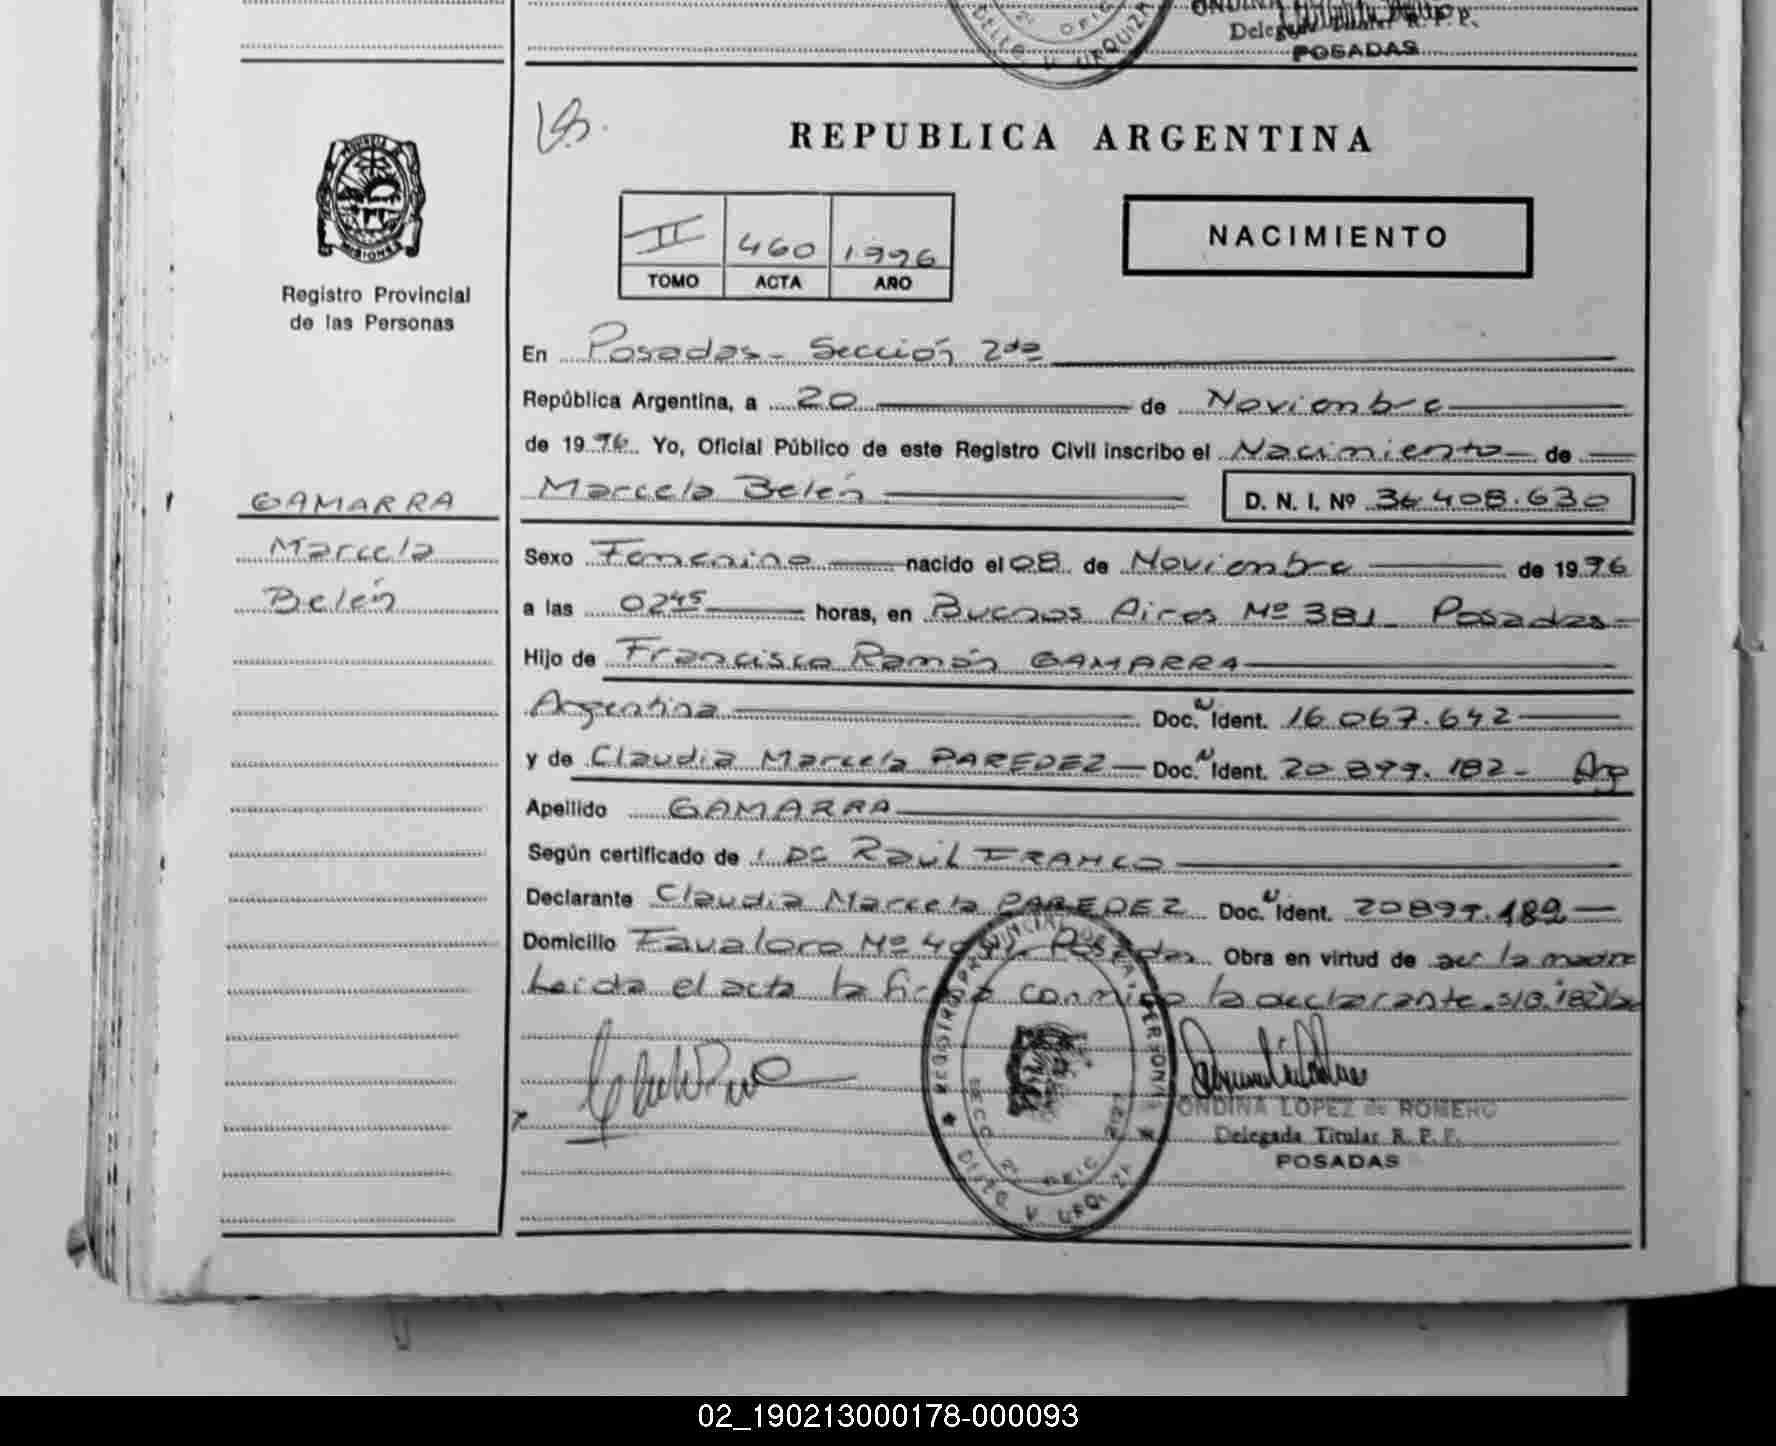 Delegada Titular R. P. P.
POSADAS
REPUBLICA ARGENTINA
II 460 1996
TOMO ACTA AÑO
NACIMIENTO
MISIONES
Registro Provincial
de las Personas
En Posadas - Sección 2da
República Argentina, a 20 de Noviembre
de 1996. Yo, Oficial Público de este Registro Civil inscribo el Nacimiento de
Marcela Belén D. N. I. Nº 36.408.630
GAMARRA
Marcela
Belén
Sexo Femenino nacido el 08 de Noviembre de 1996
a las 0245 horas, en Buenos Aires Nº 381 - Posadas -
Hijo de Francisco Ramón GAMARRA
Argentina Doc. Ident. 16.067.642
y de Claudia Marcela PAREDEZ Doc. Ident. 20.899.182 - Arg
Apellido GAMARRA
Según certificado de DC Raúl FRANCO
Declarante Claudia Marcela PAREDEZ Doc. Ident. 20.899.182
Domicilio Favaloro Nº Posadas Obra en virtud de ser la madre
Leida el acta la firma conmigo la declarante
ONDINA LOPEZ de ROMERO
Delegada Titular R. P. P.
POSADAS
02_190213000178-000093